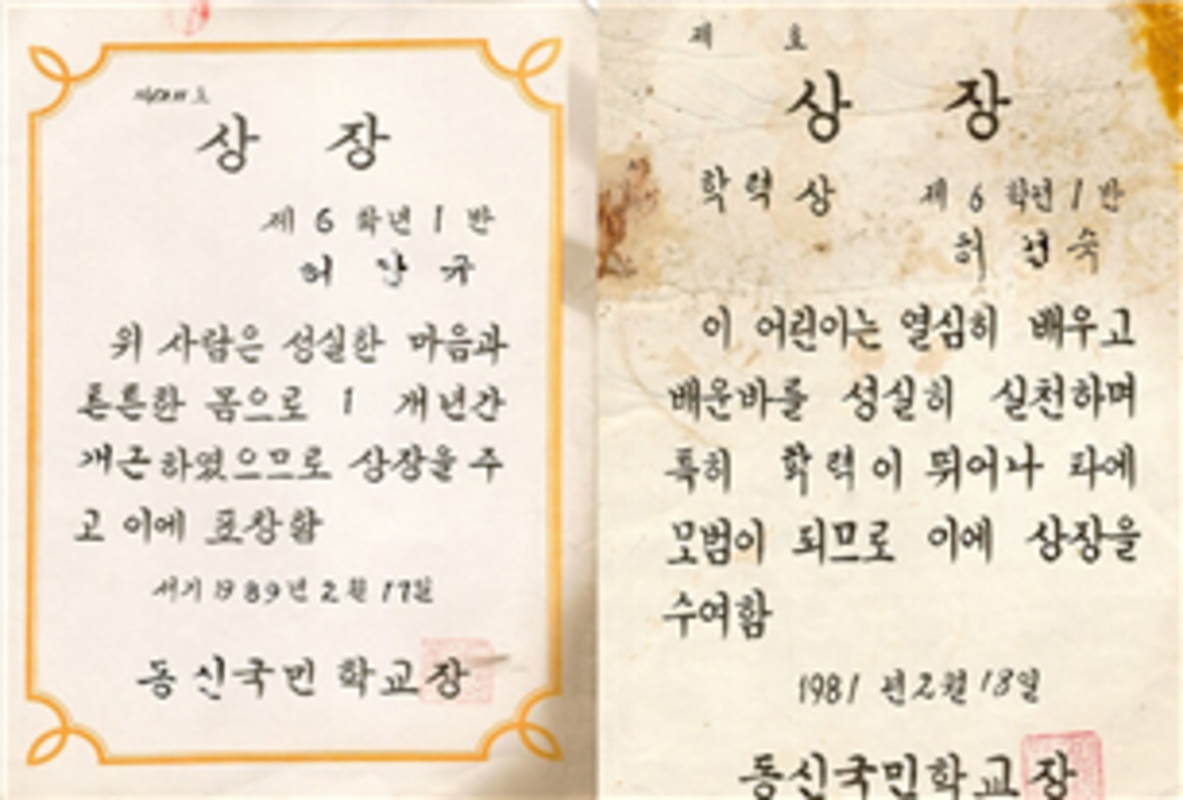 상 장
제 6 학년 1 반
허
위 사람은 성실한 마음과
튼튼한 몸으로 1 개년간
개근하였으므로 상장을 주
고 이에 표창함
서기 1989년 2월 17일
동신국민학교장
제 호
상 장
학력상 제 6 학년 1 반
허 숙
이 어린이는 열심히 배우고
배운바를 성실히 실천하며
특히 학력이 뛰어나 타에
모범이 되므로 이에 상장을
수여함
1981 년 2월 18일
동신국민학교장